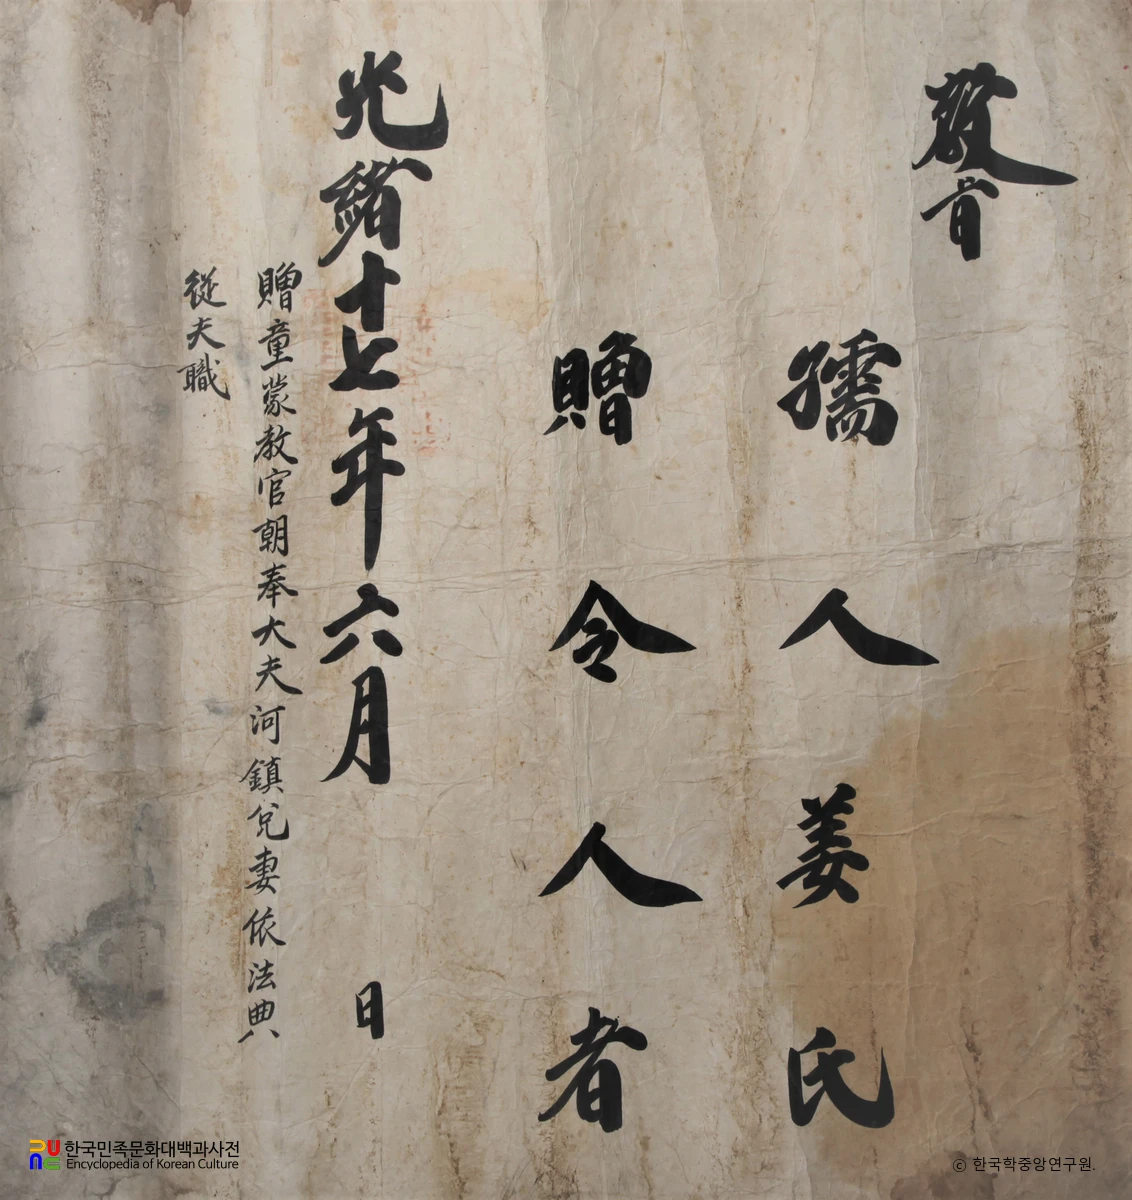 敎旨
孺人姜氏
贈令人者
光緖十七年六月 日
贈童蒙教官朝奉大夫河鎭兌妻依法典
從夫職
한국민족문화대백과사전
Encyclopedia of Korean Culture
ⓒ 한국학중앙연구원.